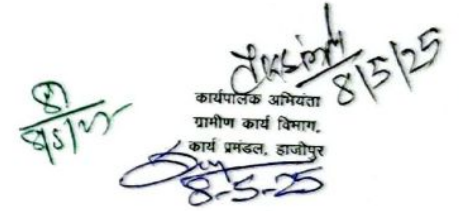 8/5/25
कार्यपालक अभियंता
ग्रामीण कार्य विभाग,
कार्य प्रमंडल, हाजीपुर
8-5-25